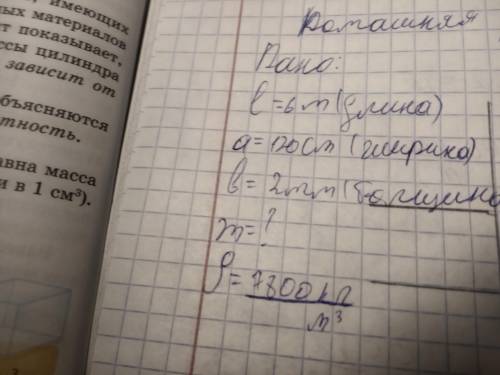 , имеющих
ных материалов
т показывает,
ссы цилиндра
зависит от
объясняются
тность.
авна масса
и в 1 см³).
Домашняя
Дано:
l = 6 m (длина)
a = 100 cm (ширина)
b = 2 mm (толщина
m = ?
ρ = 7800 кг
м³